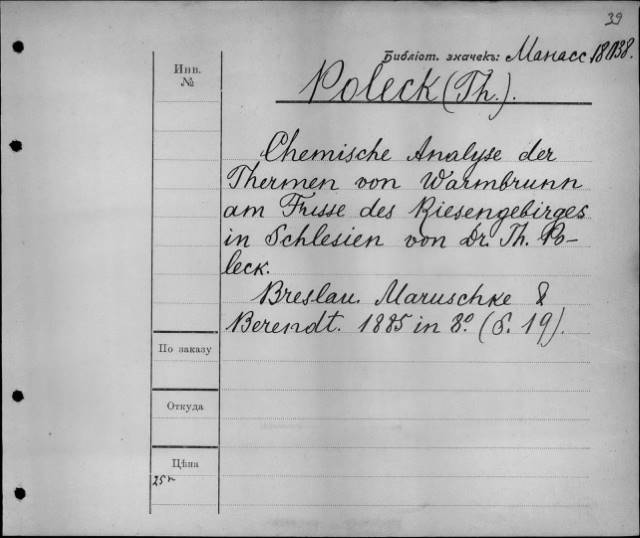 39
Библіот. значекъ: Манасс 18/138.
Инв.
№
Poleck (Th.).
Chemische Analyse der
Thermen von Warmbrunn
am Fusse des Riesengebirges
in Schlesien von Dr. Th. Po-
leck.
Breslau. Maruschke &
Berendt. 1885 in 8º. (S. 19).
По заказу
Откуда
Цѣна
25к